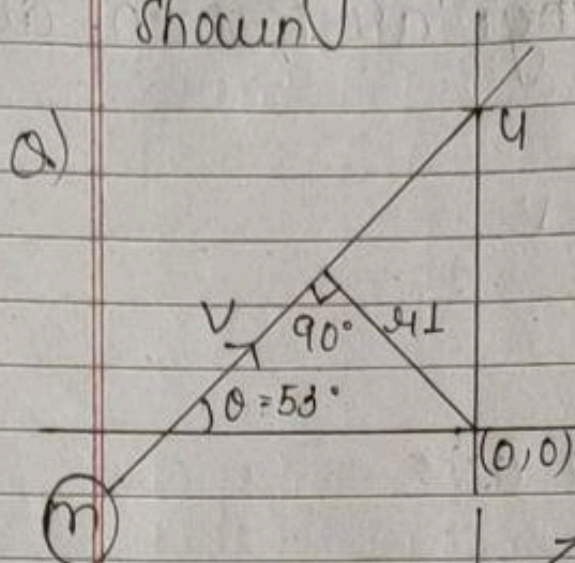 Shown
a)
4
V
90°
r⊥
θ = 53°
(0,0)
m